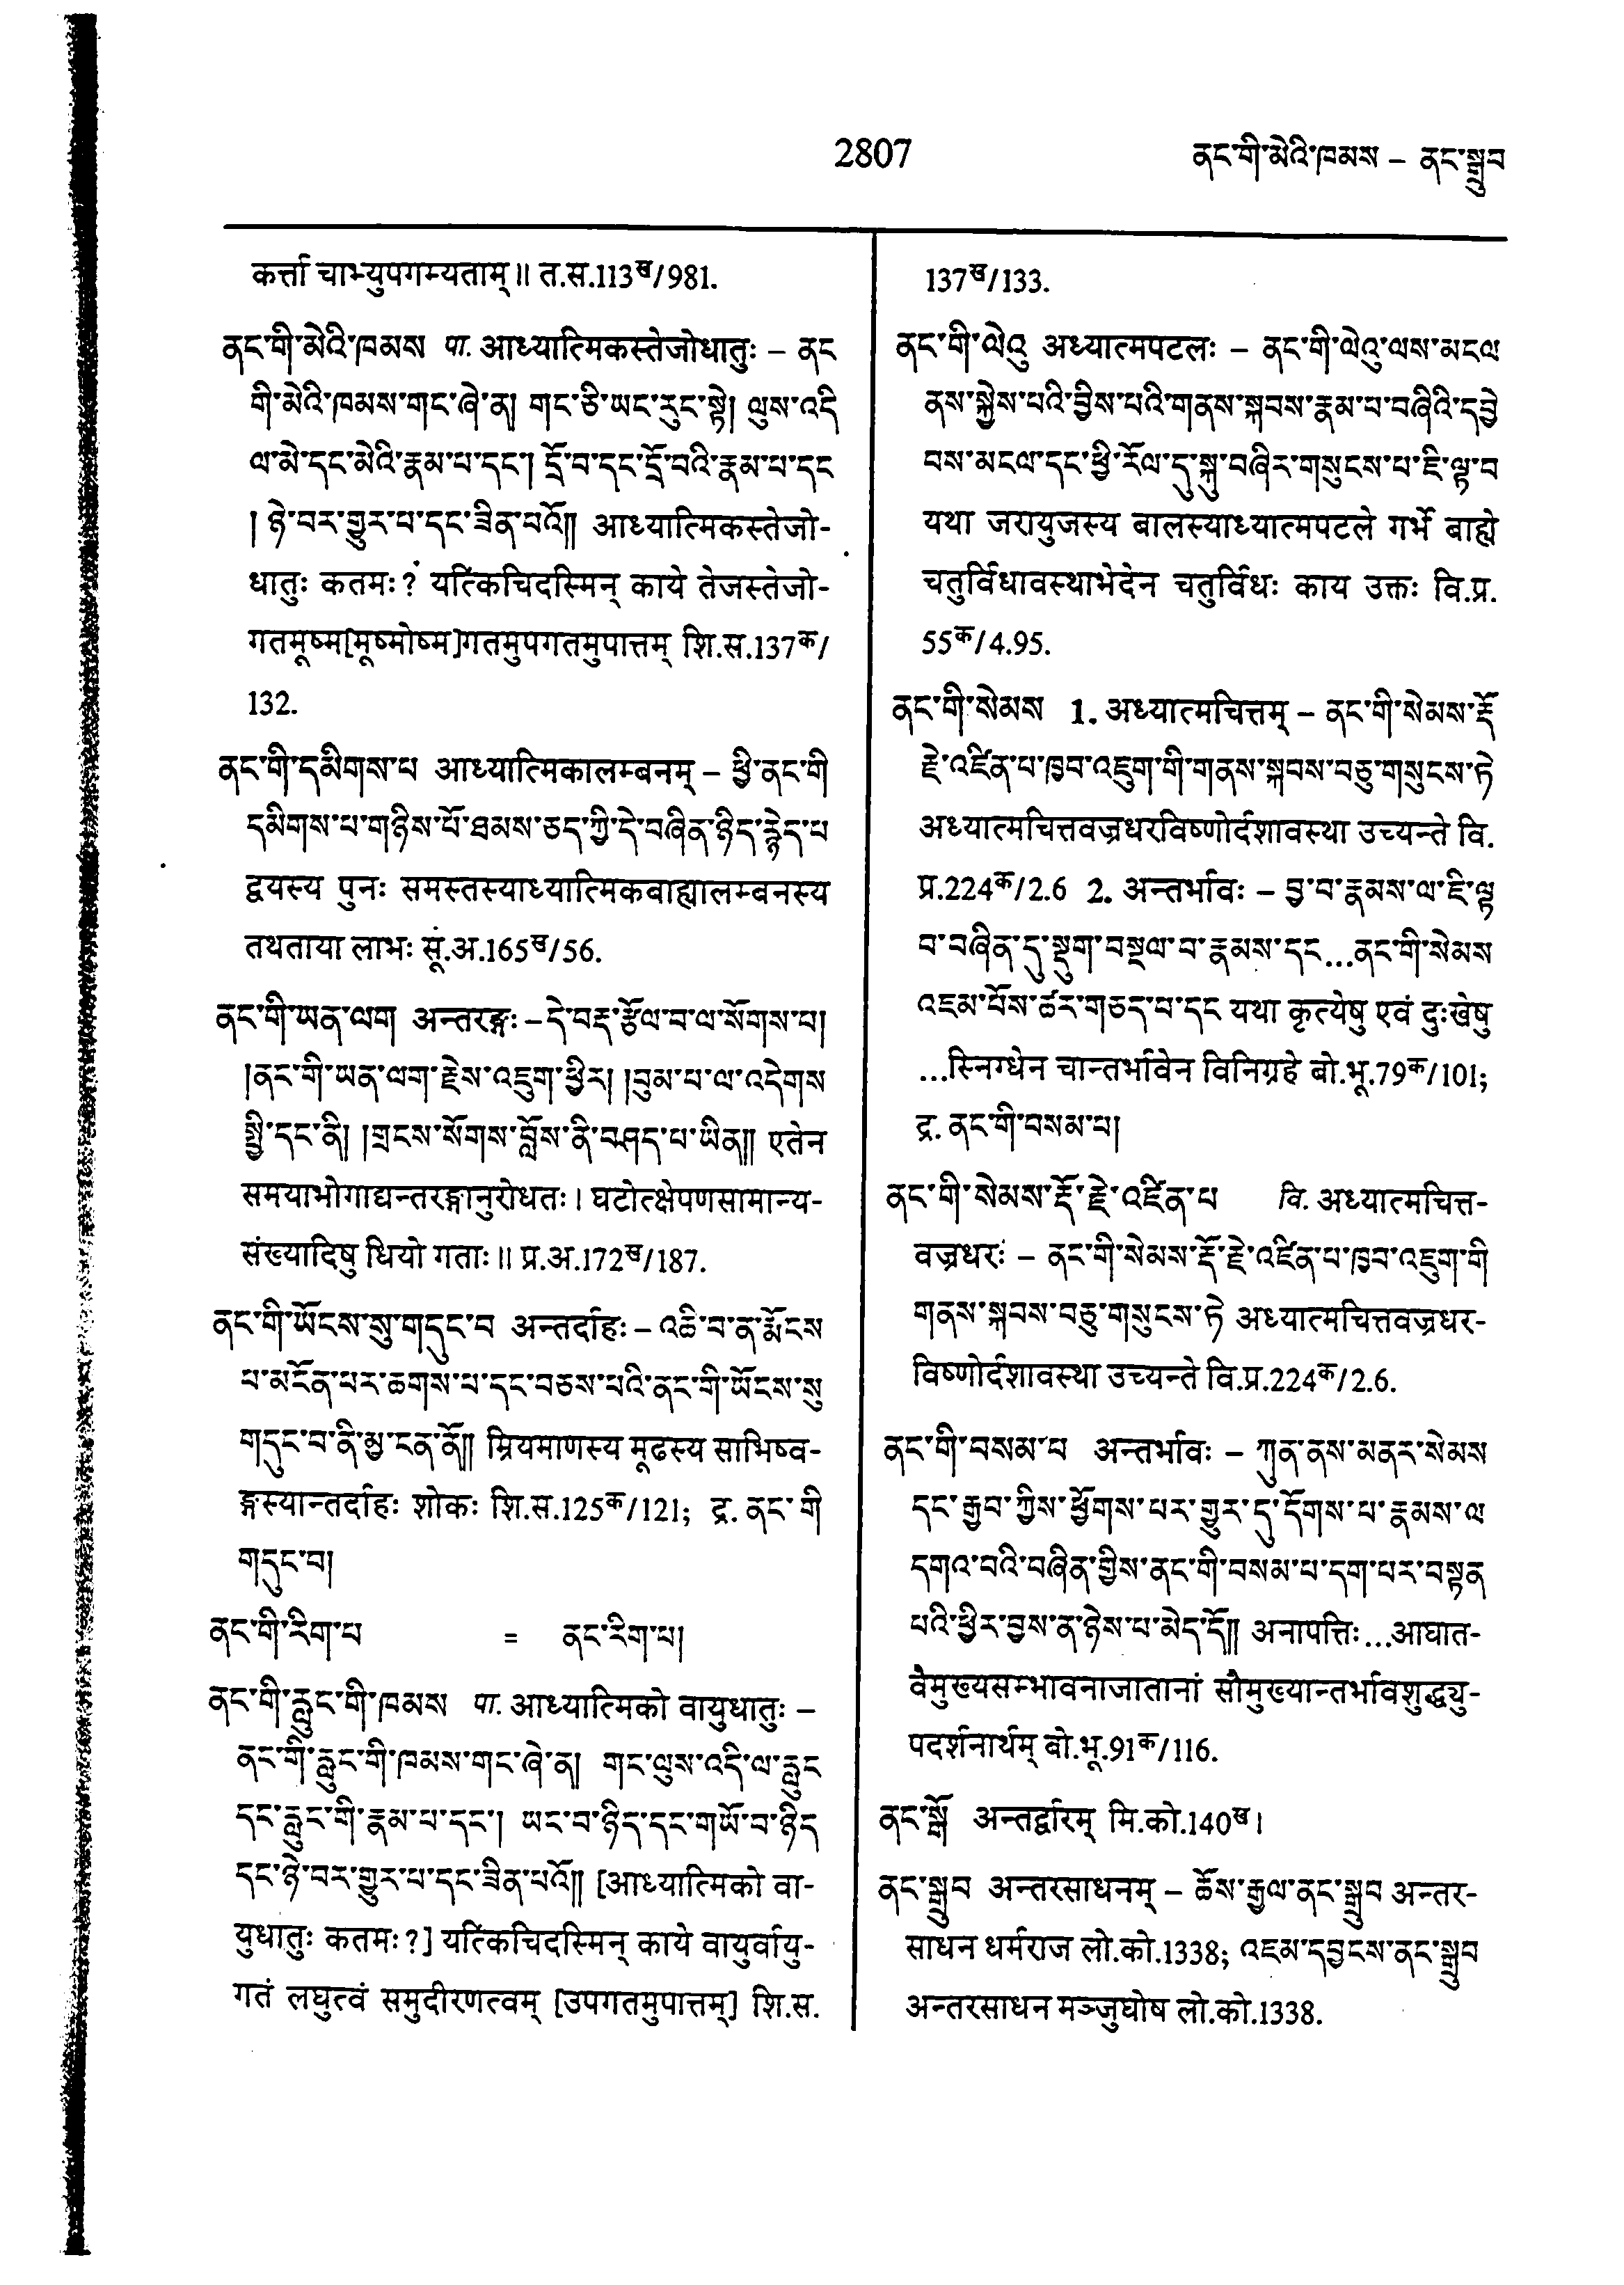 2807
ནང་གི་མེའི་ཁམས – ནང་སྒྲུབ
कर्त्ता चाभ्युपगम्यताम्॥ त.स.113ख/981.
ནང་གི་མེའི་ཁམས पा. आध्यात्मिकस्तेजोधातुः – ནང
གི་མེའི་ཁམས་གང་ཞེ་ན། གང་ཅི་ཡང་རུང་སྟེ། ལུས་འདི
ལ་མེ་དང་མེའི་རྣམ་པ་དང་། དྲོ་བ་དང་དྲོ་བའི་རྣམ་པ་དང
། ཉེ་བར་གྱུར་པ་དང་ཟིན་པའོ།། आध्यात्मिकस्तेजो-
धातुः कतमः? यत्किंचिदस्मिन् काये तेजस्तेजो-
गतमूष्म[मूष्मोष्म]गतमुपगतमुपात्तम् शि.स.137क/
132.
ནང་གི་དམིགས་པ आध्यात्मिकालम्बनम् – ཕྱི་ནང་གི
དམིགས་པ་གཉིས་པོ་ཐམས་ཅད་ཀྱི་དེ་བཞིན་ཉིད་རྙེད་པ
द्वयस्य पुनः समस्तस्याध्यात्मिकबाह्यालम्बनस्य
तथताया लाभः सू.अ.165ख/56.
ནང་གི་ཡན་ལག अन्तरङ्गः – དེ་བརྡ་རྩོལ་བ་ལ་སོགས་པ།
།ནང་གི་ཡན་ལག་རྗེས་འཇུག་ཕྱིར། །བུམ་པ་ལ་འདེགས
སྤྱི་དང་ནི། །གྲངས་སོགས་བློས་ནི་བཤད་པ་ཡིན།། एतेन
समयाभोगाद्यन्तरङ्गानुरोधतः। घटोत्क्षेपणसामान्य-
संख्यादिषु धियो गताः॥ प्र.अ.172ख/187.
ནང་གི་ཡོངས་སུ་གདུང་བ अन्तर्दाहः – འཆི་བ་ན་རྨོངས
པ་མངོན་པར་ཆགས་པ་དང་བཅས་པའི་ནང་གི་ཡོངས་སུ
གདུང་བ་ནི་མྱ་ངན་ནོ།། म्रियमाणस्य मूढस्य साभिष्व-
ङ्गस्यान्तर्दाहः शोकः शि.स.125क/121; द्र. ནང་གི
གདུང་བ།
ནང་གི་རིག་པ = ནང་རིག་པ།
ནང་གི་རླུང་གི་ཁམས पा. आध्यात्मिको वायुधातुः –
ནང་གི་རླུང་གི་ཁམས་གང་ཞེ་ན། གང་ལུས་འདི་ལ་རླུང
དང་རླུང་གི་རྣམ་པ་དང་། ཡང་བ་ཉིད་དང་གཡོ་བ་ཉིད
དང་ཉེ་བར་གྱུར་པ་དང་ཟིན་པའོ།། [आध्यात्मिको वा-
युधातुः कतमः?] यत्किंचिदस्मिन् काये वायुर्वायु-
गतं लघुत्वं समुदीरणत्वम् [उपगतमुपात्तम्] शि.स.
137ख/133.
ནང་གི་ལེའུ अध्यात्मपटलः – ནང་གི་ལེའུ་ལས་མངལ
ནས་སྐྱེས་པའི་བྱིས་པའི་གནས་སྐབས་རྣམ་པ་བཞིའི་དབྱེ
བས་མངལ་དང་ཕྱི་རོལ་དུ་སྐུ་བཞིར་གསུངས་པ་ཇི་ལྟ་བ
यथा जरायुजस्य बालस्याध्यात्मपटले गर्भे बाह्ये
चतुर्विधावस्थाभेदेन चतुर्विधः काय उक्तः वि.प्र.
55क/4.95.
ནང་གི་སེམས 1. अध्यात्मचित्तम् – ནང་གི་སེམས་རྡོ
རྗེ་འཛིན་པ་ཁྱབ་འཇུག་གི་གནས་སྐབས་བཅུ་གསུངས་ཏེ
अध्यात्मचित्तवज्रधरविष्णोर्दशावस्था उच्यन्ते वि.
प्र.224क/2.6 2. अन्तर्भावः – བྱ་བ་རྣམས་ལ་ཇི་ལྟ
བ་བཞིན་དུ་སྡུག་བསྔལ་བ་རྣམས་དང...ནང་གི་སེམས
འཇམ་པོས་ཚར་གཅད་པ་དང यथा कृत्येषु एवं दुःखेषु
...स्निग्धेन चान्तर्भावेन विनिग्रहे बो.भू.79क/101;
द्र. ནང་གི་བསམ་པ།
ནང་གི་སེམས་རྡོ་རྗེ་འཛིན་པ वि. अध्यात्मचित्त-
वज्रधरः – ནང་གི་སེམས་རྡོ་རྗེ་འཛིན་པ་ཁྱབ་འཇུག་གི
གནས་སྐབས་བཅུ་གསུངས་ཏེ अध्यात्मचित्तवज्रधर-
विष्णोर्दशावस्था उच्यन्ते वि.प्र.224क/2.6.
ནང་གི་བསམ་པ अन्तर्भावः – ཀུན་ནས་མནར་སེམས
དང་རྒྱབ་ཀྱིས་ཕྱོགས་པར་གྱུར་དུ་དོགས་པ་རྣམས་ལ
དགའ་བའི་བཞིན་གྱིས་ནང་གི་བསམ་པ་དག་པར་བསྟན
པའི་ཕྱིར་བྱས་ན་ཉེས་པ་མེད་དོ།། अनापत्तिः...आघात-
वैमुख्यसम्भावनाजातानां सौमुख्यान्तर्भावशुद्ध्यु-
पदर्शनार्थम् बो.भू.91क/116.
ནང་སྒོ अन्तर्द्वारम् मि.को.140ख।
ནང་སྒྲུབ अन्तरसाधनम् – ཆོས་རྒྱལ་ནང་སྒྲུབ अन्तर-
साधन धर्मराज लो.को.1338; འཇམ་དབྱངས་ནང་སྒྲུབ
अन्तरसाधन मञ्जुघोष लो.को.1338.